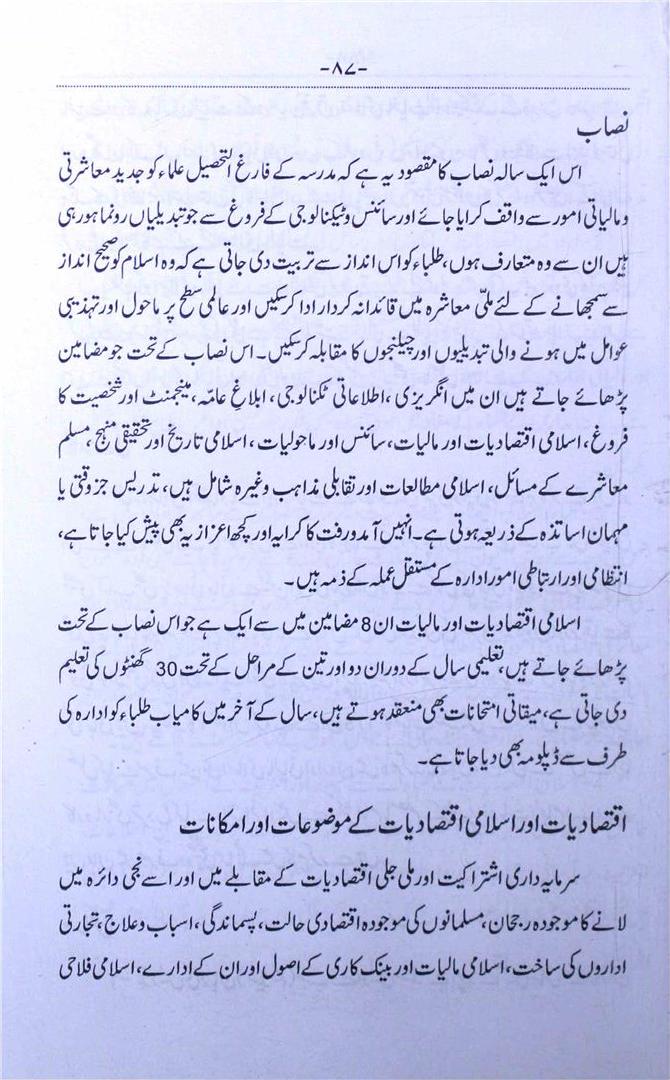 -۸۷-
نصاب
اس ایک سالہ نصاب کا مقصود یہ ہے کہ مدرسہ کے فارغ التحصیل علماء کو جدید معاشرتی
و مالیاتی امور سے واقف کرایا جائے اور سائنس و ٹیکنالوجی کے فروغ سے جو تبدیلیاں رونما ہو رہی
ہیں ان سے وہ متعارف ہوں، طلباء کو اس انداز سے تربیت دی جاتی ہے کہ وہ اسلام کو صحیح انداز
سے سمجھانے کے لئے ملّی معاشرہ میں قائدانہ کردار ادا کر سکیں اور عالمی سطح پر ماحول اور تہذیبی
عوامل میں ہونے والی تبدیلیوں اور چیلنجوں کا مقابلہ کر سکیں۔ اس نصاب کے تحت جو مضامین
پڑھائے جاتے ہیں ان میں انگریزی، اطلاعاتی ٹکنالوجی، ابلاغِ عامّہ، مینجمنٹ اور شخصیت کا
فروغ، اسلامی اقتصادیات اور مالیات، سائنس اور ماحولیات، اسلامی تاریخ اور تحقیقی منہج، مسلم
معاشرے کے مسائل، اسلامی مطالعات اور تقابلی مذاہب وغیرہ شامل ہیں، تدریس جزوقتی یا
مہمان اساتذہ کے ذریعہ ہوتی ہے۔ انہیں آمدورفت کا کرایہ اور کچھ اعزازیہ بھی پیش کیا جاتا ہے،
انتظامی اور ارتباطی امور ادارہ کے مستقل عملہ کے ذمہ ہیں۔
اسلامی اقتصادیات اور مالیات ان 8 مضامین میں سے ایک ہے جو اس نصاب کے تحت
پڑھائے جاتے ہیں، تعلیمی سال کے دوران دو اور تین کے مراحل کے تحت 30 گھنٹوں کی تعلیم
دی جاتی ہے، میقاتی امتحانات بھی منعقد ہوتے ہیں، سال کے آخر میں کامیاب طلباء کو ادارہ کی
طرف سے ڈپلومہ بھی دیا جاتا ہے۔
اقتصادیات اور اسلامی اقتصادیات کے موضوعات اور امکانات
سرمایہ داری اشتراکیت اور ملی جلی اقتصادیات کے مقابلے میں اور اسے نجی دائرہ میں
لانے کا موجودہ رجحان، مسلمانوں کی موجودہ اقتصادی حالت، پسماندگی، اسباب و علاج، تجارتی
اداروں کی ساخت، اسلامی مالیات اور بینک کاری کے اصول اور ان کے ادارے، اسلامی فلاحی